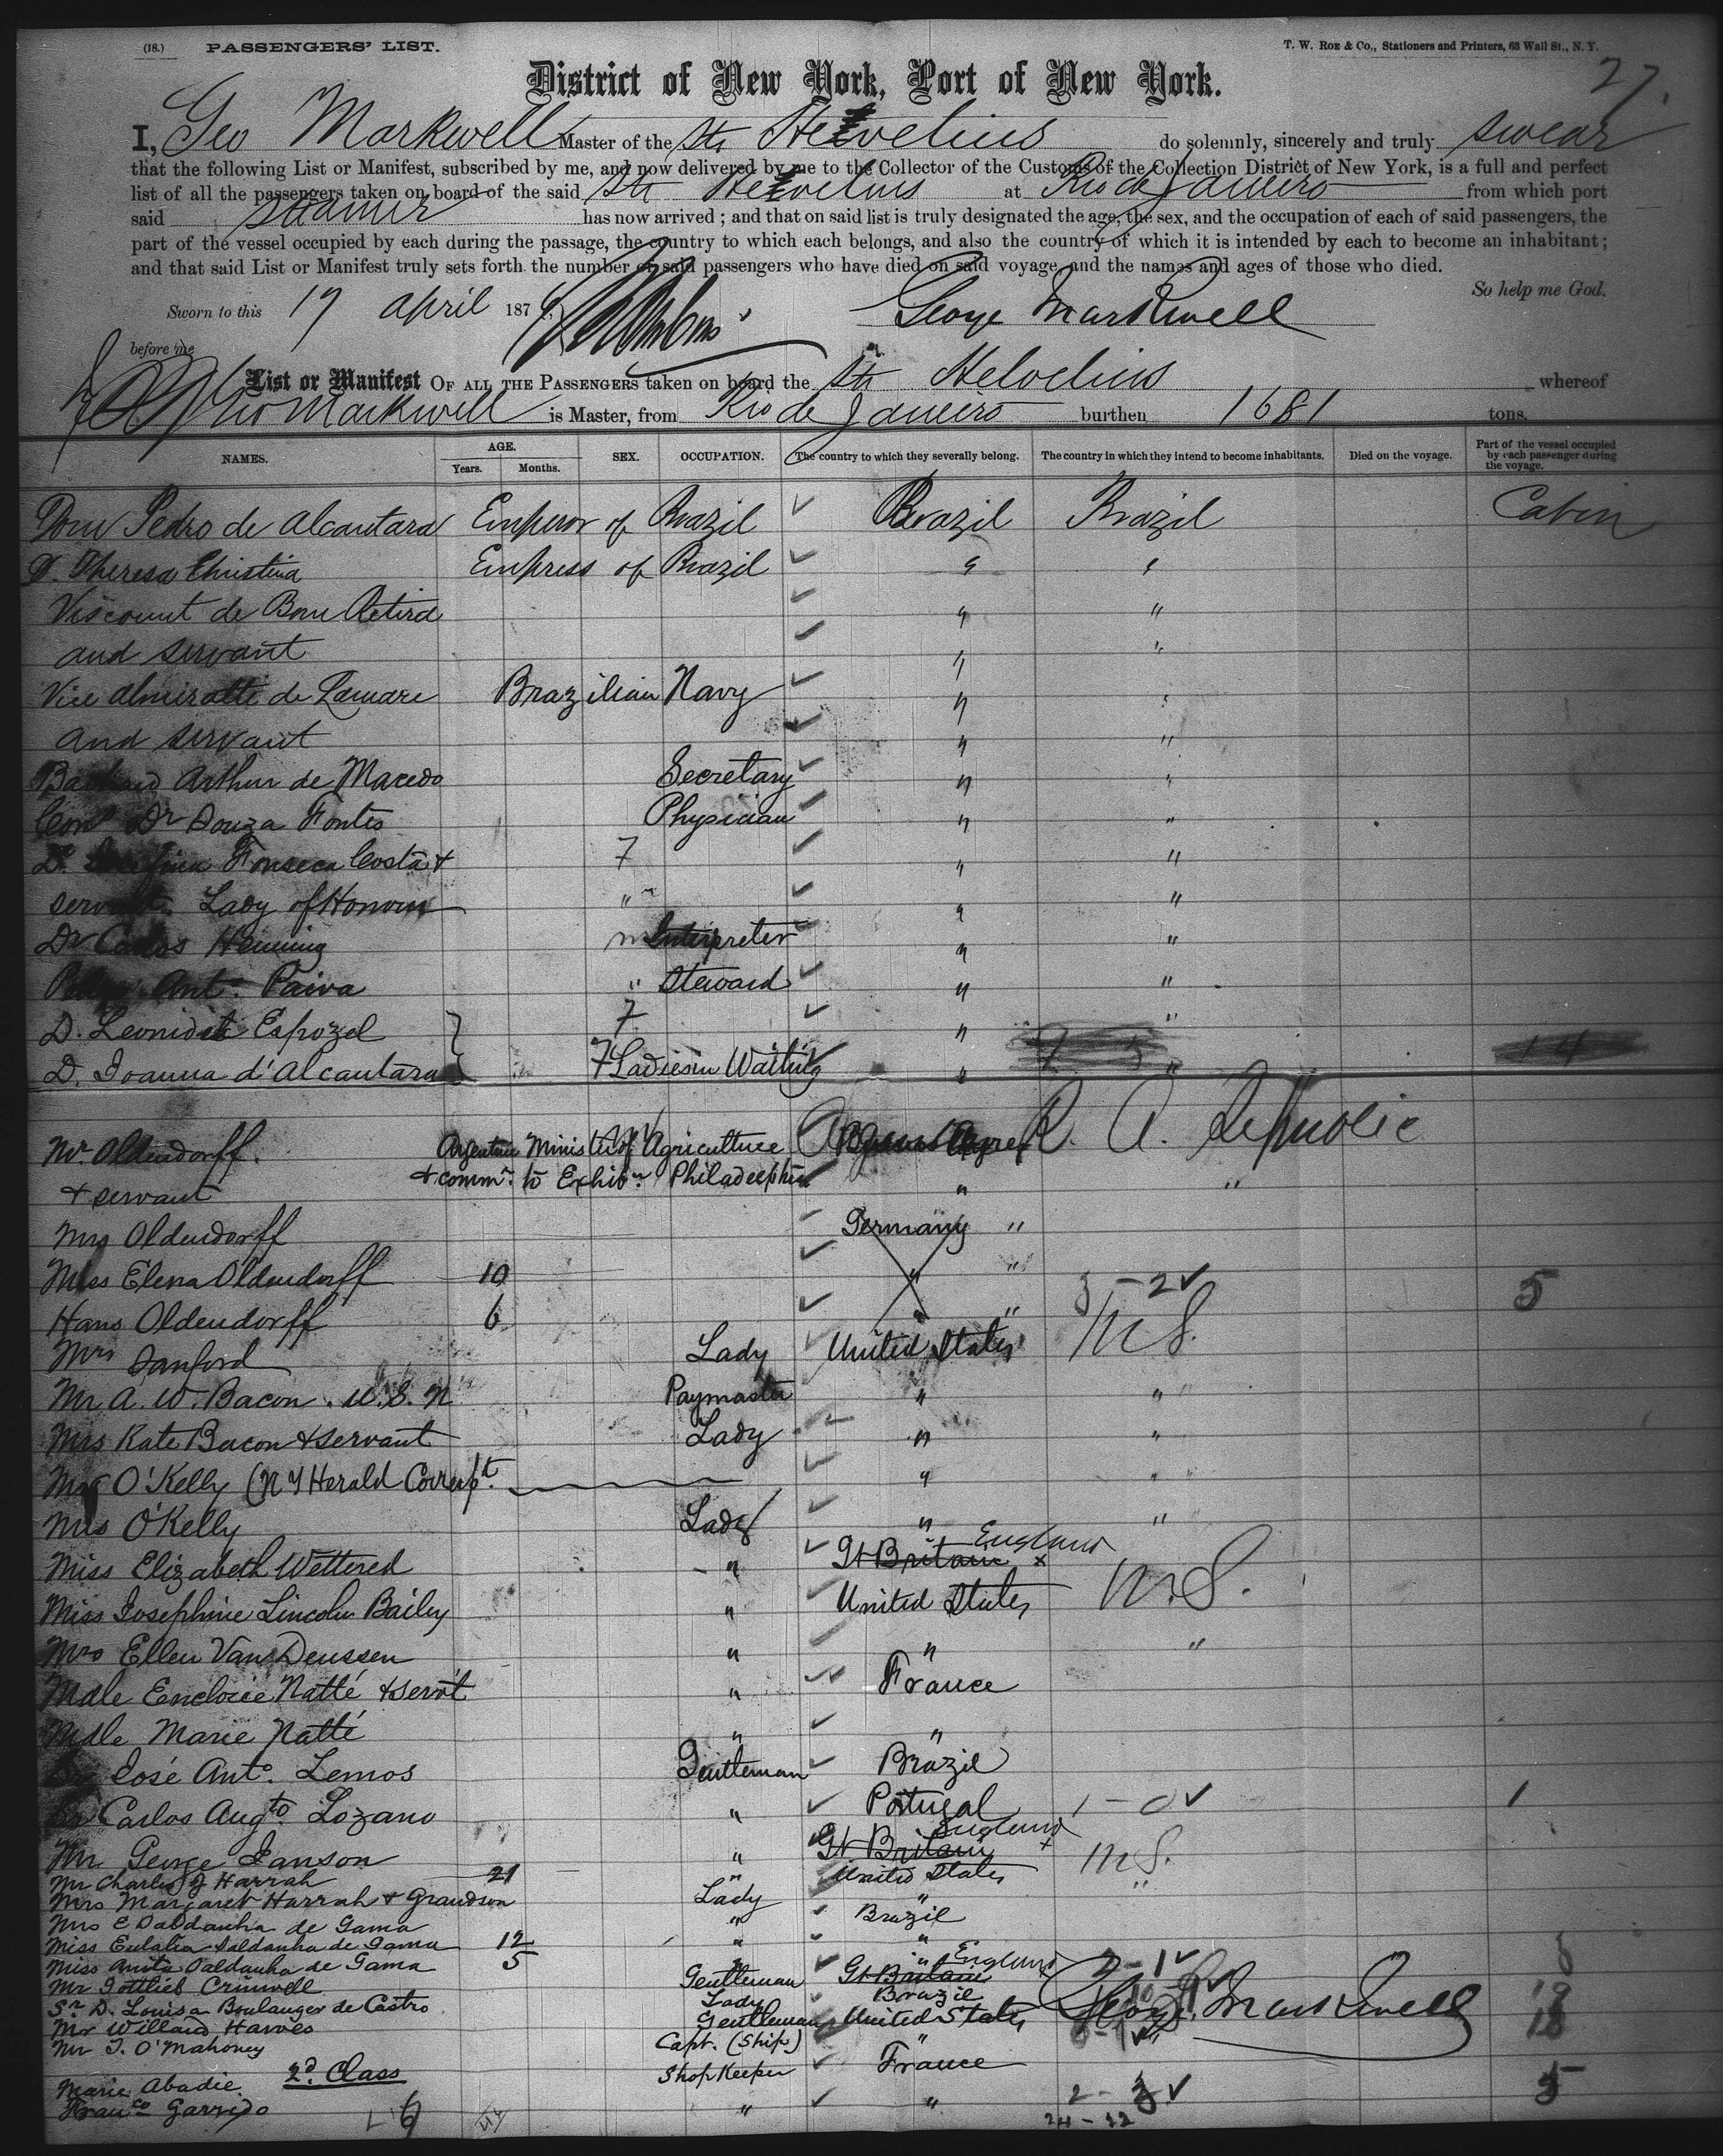 (18.) PASSENGERS' LIST. T. W. ROE & Co., Stationers and Printers, 63 Wall St., N. Y.
27.
District of New York, Port of New York.
I, Geo Markwell Master of the Str Hevelius do solemnly, sincerely and truly swear
that the following List or Manifest, subscribed by me, and now delivered by me to the Collector of the Customs of the Collection District of New York, is a full and perfect
list of all the passengers taken on board of the said Str Hevelius at Rio de Janeiro from which port
said steamer has now arrived; and that on said list is truly designated the age, the sex, and the occupation of each of said passengers, the
part of the vessel occupied by each during the passage, the country to which each belongs, and also the country of which it is intended by each to become an inhabitant;
and that said List or Manifest truly sets forth the number of said passengers who have died on said voyage, and the names and ages of those who died.
So help me God.
Sworn to this 17 April 187 George Markwell
before me
List or Manifest OF ALL THE PASSENGERS taken on board the Str Helvelius whereof
Geo Markwell is Master, from Rio de Janeiro burthen 1681 tons.
NAMES. AGE. Years. Months. SEX. OCCUPATION. The country to which they severally belong. The country in which they intend to become inhabitants. Died on the voyage. Part of the vessel occupied by each passenger during the voyage.
Dom Pedro de Alcantara Emperor of Brazil Brazil Brazil Cabin
D. Theresa Christina Empress of Brazil " "
Viscount de Bom Retiro " "
and servant " "
Vice Almiratte de Lamare Brazilian Navy " "
and servant " "
Arthur de Macedo Secretary " "
Dr Souza Fontes Physician " "
Fonseca Costa + F " "
servant Lady of Honour " " "
Dr Carlos Henning m Interpreter " "
Anto. Paiva " Steward " "
D. Leonidia Espozel F " "
D. Joanna d'Alcantara F Ladies in Waiting " " 14
Mr. Oldendorff. Argentine Minister of Agriculture R. A. Republic
+ servant + commr. to Exhibn. Philadelphia " "
Mrs Oldendorff Germany "
Miss Elena Oldendorff 10 " " 3 - 2 5
Hans Oldendorff 6 " "
Mrs Sanford Lady United States U S.
Mr A. W. Bacon. U. S. N Paymaster " "
Mrs Kate Bacon & servant Lady " "
Mr O'Kelly (N Y Herald Correspt. " "
Mrs O'Kelly Lady " "
Miss Elizabeth Wettered " Gt Britain England x
Miss Josephine Lincoln Bailey " United States U.S.
Mrs Ellen Van Deussen " " "
Mdle Natté & servt " France
Mdle Marie Natté " "
José Anto. Lemos Gentleman Brazil
Carlos Augto Lozano " Portugal 1 - 0 1
Mr George Janson " Gt Britain England x U.S.
Mr Charles J Harrah 21 " United States "
Mrs Margaret Harrah & Grandson Lady "
Mrs E Saldanha de Gama " Brazil
Miss Eulalia Saldanha de Gama 12 " "
Miss Anita Saldanha de Gama 5 " " 2 - 1
Mr Gottlieb Gentleman Gt Britain England x
Sra D. Louisa Boulanger de Castro Lady Brazil George Markwell 19
Mr Willard Gentleman United States 18
Mr J. O'Mahoney Capt. (Ship) "
2d. Class
Marie Abadie Shop Keeper France 5
Franco Garrido " " 2 - 3
24 - 22